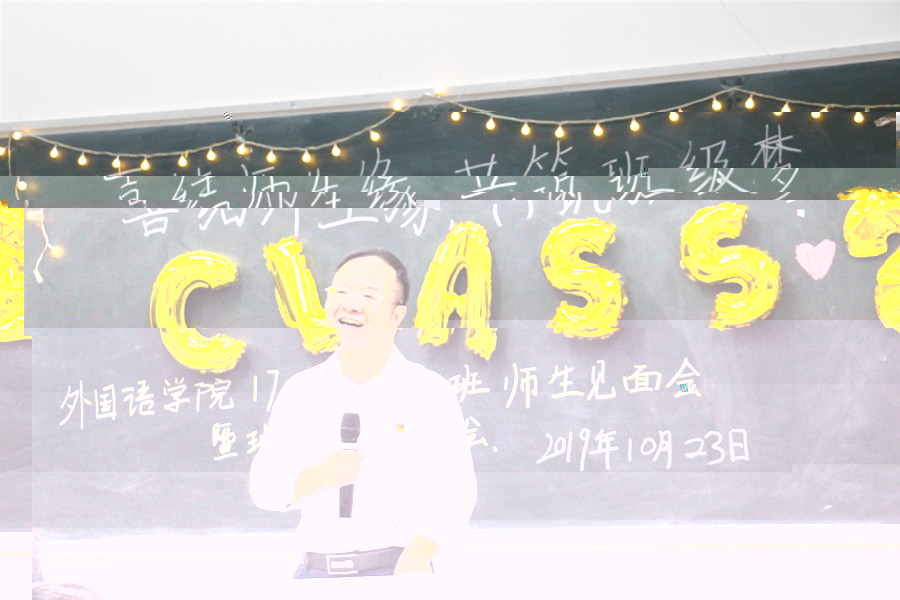 喜结师生缘,共筑班级梦.
CLASS
外国语学院 17 班 师生见面会
暨 会. 2019年10月23日